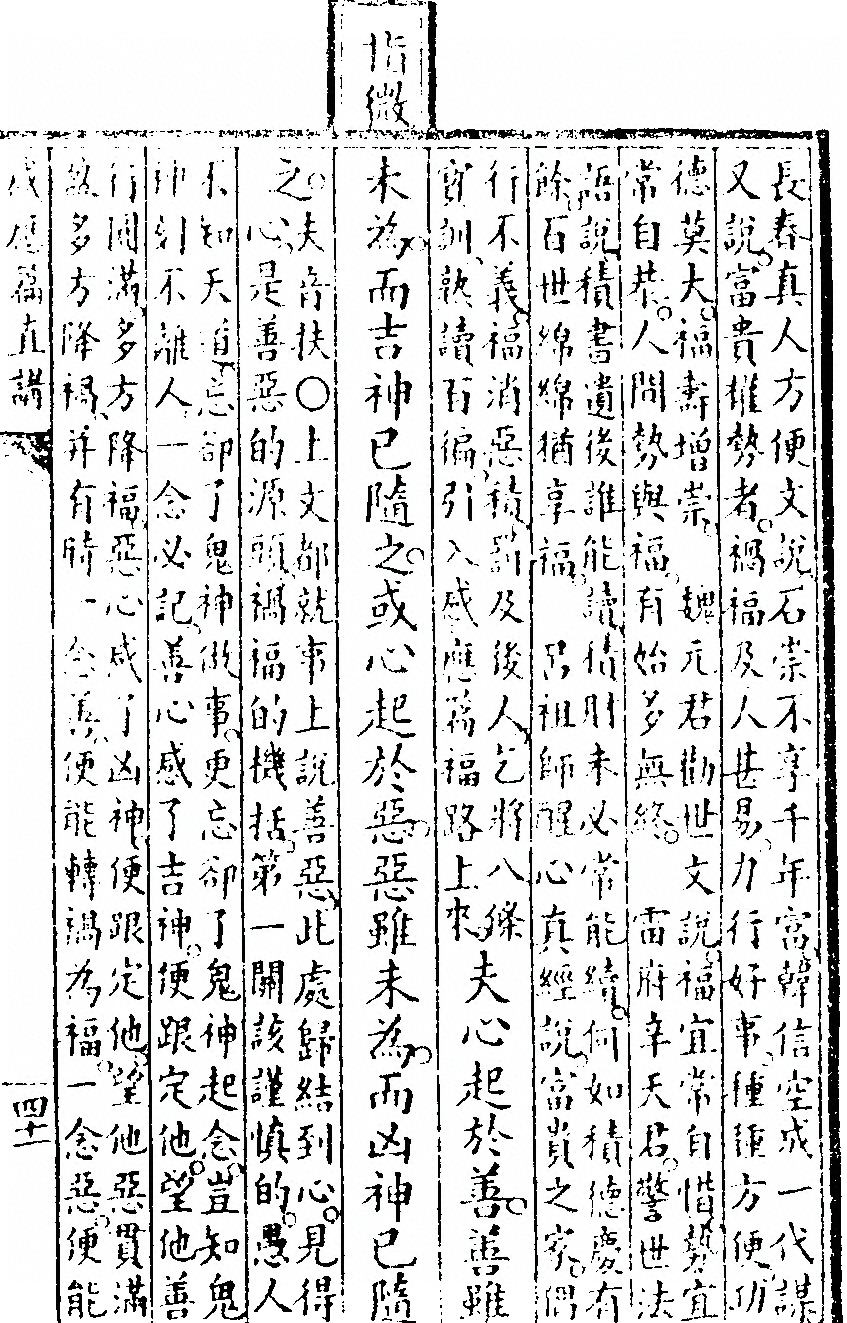 指微
長春真人方便文說石崇不享千年富韓信空成一代謀
又說富貴權勢者禍福及人甚易力行好事種種方便功
德莫大福壽增崇　魏元君勸世文說福宜常自惜勢宜
常自恭人間勢與福有始多無終　雷府辛天君警世法
語說積書遺後誰能讀積財未必常能續何如積德慶有
餘百世綿綿猶享福　呂祖師醒心真經說富貴之家偶
行不義福消惡積罰及後人乞將八條
寶訓熟讀百徧引入感應篇福路上來
夫心起於善善雖
未為而吉神已隨之或心起於惡惡雖未為而凶神已隨
之夫音扶〇上文都就事上說善惡此處歸結到心見得
心是善惡的源頭禍福的機括第一關該謹慎的愚人
不知天道忘卻了鬼神做事更忘卻了鬼神起念豈知鬼
神刻不離人一念必記善心感了吉神便跟定他望他善
行圓滿多方降福惡心感了凶神便跟定他望他惡貫滿
盈多方降禍并有時一念善便能轉禍為福一念惡便能
感應篇直講
四十一